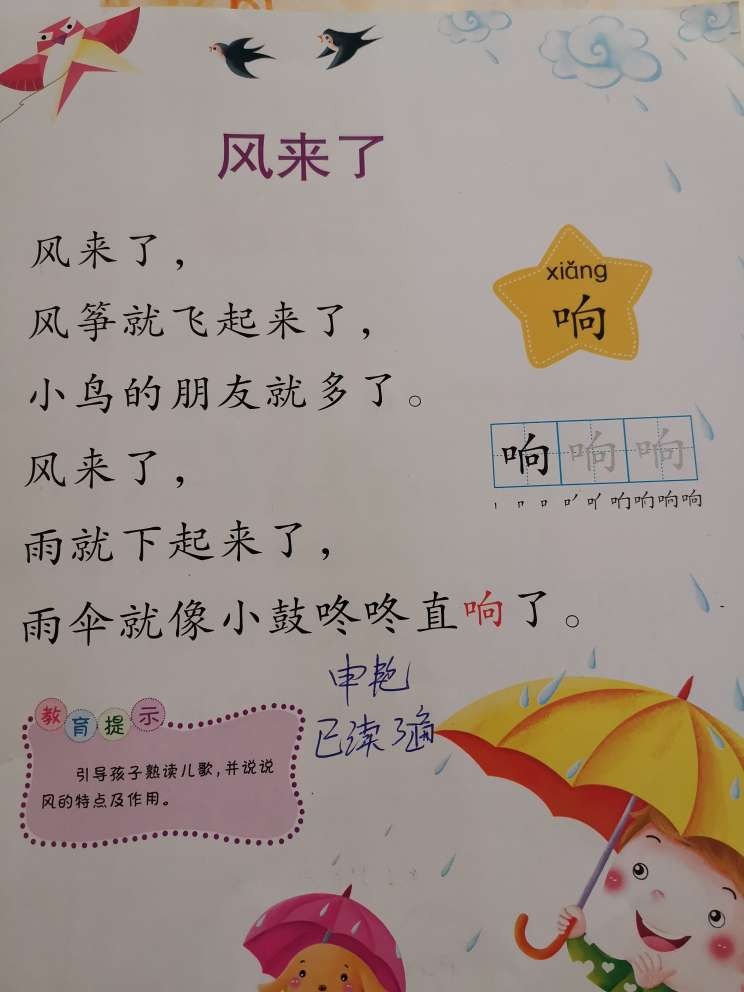 风来了
风来了，
风筝就飞起来了，
小鸟的朋友就多了。
风来了，
雨就下起来了，
雨伞就像小鼓咚咚直响了。
xiǎng
响
响 响 响
申艳
已读了遍
教育提示
引导孩子熟读儿歌，并说说
风的特点及作用。